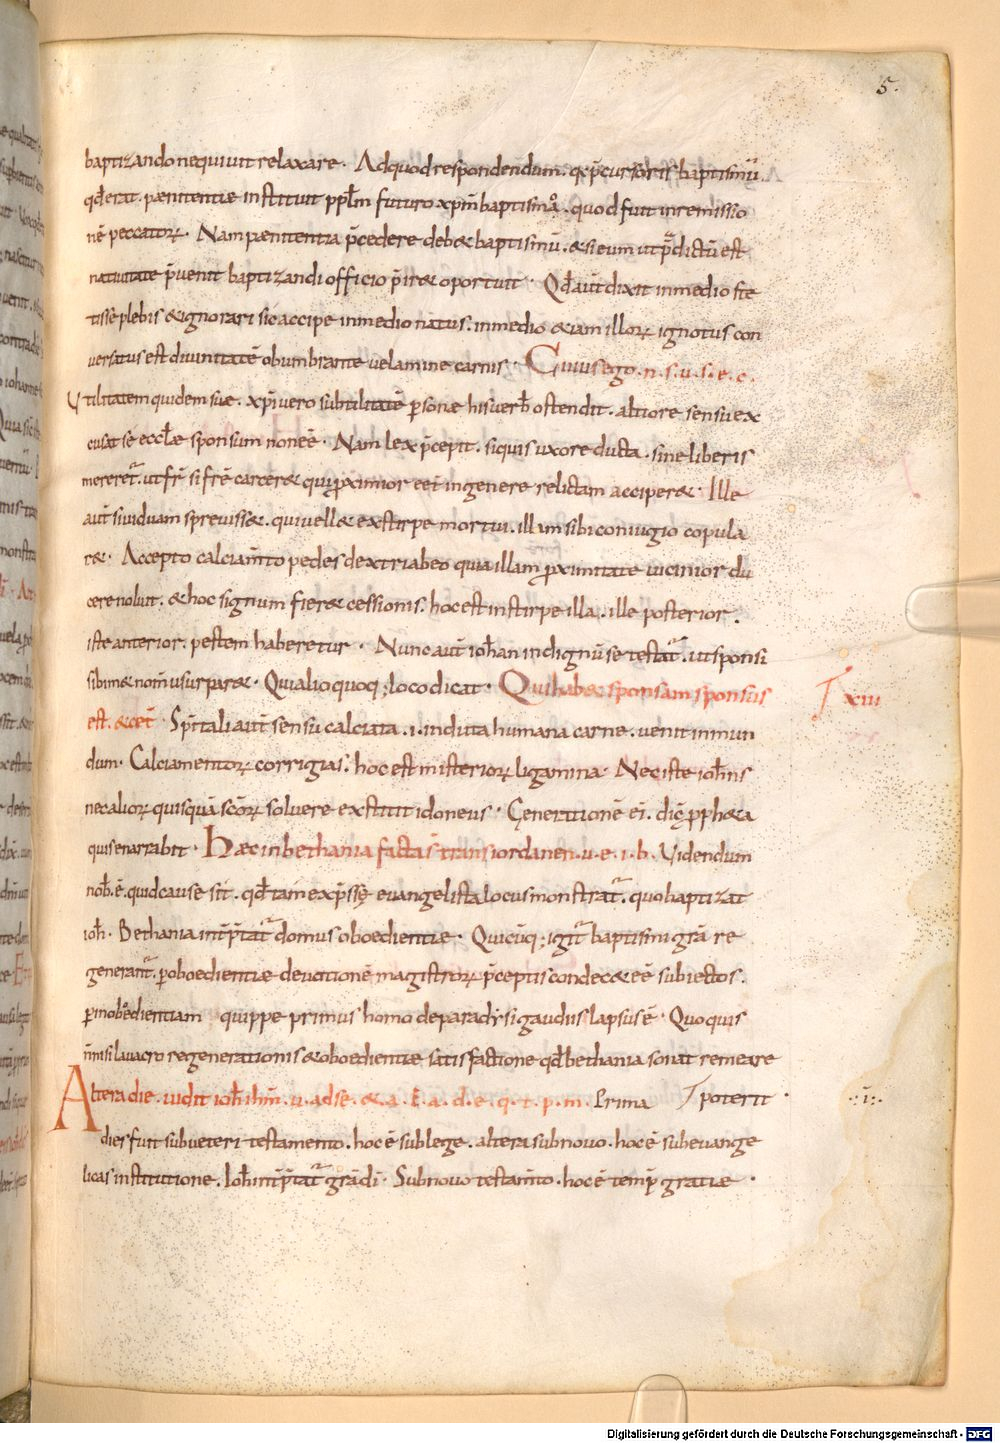 5.
baptizando nequiuit relaxare. Ad quod respondendum. q̄ p̄cursoris baptismū.
qd̄ erat. paenitentiae instituit pp̄lm futuro xp̄ī baptismo. quod fuit in remissio
nē peccatorꝝ. Nam paenitentia p̄cedere deb& baptismū. & si eum ut p̄dictū est
natiuitate p̄uenit baptizandi officio p̄ir& oportuit. Qd̄ aut̄ dixit in medio ste
tisse plebis & ignorari sic accipe in medio natus. in medio & iam illorꝝ ignotus con
uersatus est diuinitatē obumbrante uelamine carnis. Cuius ego. n. s. u. s. e. c.
Utilitatem quidem suae. xp̄i uero subtilitatē personae his uerb̄ ostendit. altiore sensu ex
cusat se eccl̄ae sponsum non eē. Nam lex p̄cepit. si quis uxore ducta. sine liberis
moreret᷑. ut fr̄ si frē carcer& qui ꝓximior eēt in genere relictam acciper&. Ille
aut̄ si uiduam spreuiss&. qui uell& ex stirpe mortui. illam sibi coniugio copula
r&. Accepto calciam̄to pedes dextri ab eo quia illam ꝓximitate uicinior du
cere noluit. & hoc signum fier& cessionis. hoc est in stirpe illa. ille posterior.
iste anterior. pestem haberetur. Nunc aut̄ ioh̄an indignū se testat᷑. ut sponsi
sibim& nom̄ usurpar&. Qui alio quoq; loco dicat. Qui hab& sponsam sponsus
T xiii
est. & cet̄. Sp̄itali aut̄ sensu calciata. i. induta humana carne. uenit in mun
dum. Calciamentorꝝ corrigias. hoc est misteriorꝝ ligamina. Nec iste ioh̄nis
nec aliorꝝ quisquā sc̄orꝝ soluere exstitit idoneus. Generationē ei. dic̄ propheta
quis enarrabit. Haec in bethania facta s̄ trans iordanen. u. e. i. b. Uidendum
nob̄. ē. quid causae sit. qd̄ tam exp̄sse euangelista locus monstrat᷑. quo baptizat
ioh̄. Bethania int̄p̄tat᷑ domus oboedientiae. Quicūq; igit᷑ baptismi grā re
generant᷑. per oboedientiae deuotionē magistrorꝝ p̄ceptis condec& eē subiectos.
per inoboedientiam quippe primus homo de paradysi gaudiis lapsus ē. Quo quis
n̄ nisi lauacro regenerationis & oboedientiae satisfactione qd̄ bethania sonat remeare
Altera die. uidit ioh̄. ih̄m. u. ad se. & a. E. a. d. e. q. t. p. m. Prima poterit.
.:i:.
dies fuit sub ueteri testamento. hoc ē sub lege. altera sub nouo. hoc ē sub euange
licas institutione. Ioh̄ int̄p̄tat᷑ grā dī. Sub nouo testam̄to. hoc ē temp̄r gratiae.
Digitalisierung gefördert durch die Deutsche Forschungsgemeinschaft - DFG